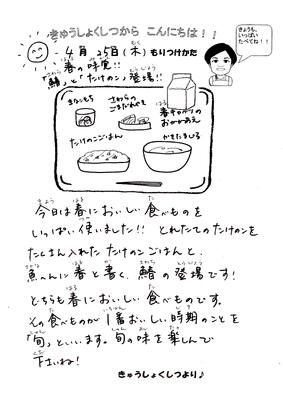 きゅうしょくしつから こんにちは！！
4月 25日(木) もりつけかた
きょうも、
いっぱい
たべてね！！
春の味覚!!
「鰆」と「たけのこ」登場!!
きなこもち
さわらの
春キャベツの
おかかあえ
たけのこごはん
かきたまじる
今日は春においしい食べものを
いっぱい使いました!! とれたてのたけのこを
たくさん入れた たけのこごはんと、
魚へんに春と書く、鰆の登場です！
どちらも春においしい食べものです。
その食べものが1番おいしい時期のことを
「旬」といいます。旬の味を楽しんで
下さいね！
きゅうしょくしつより♪